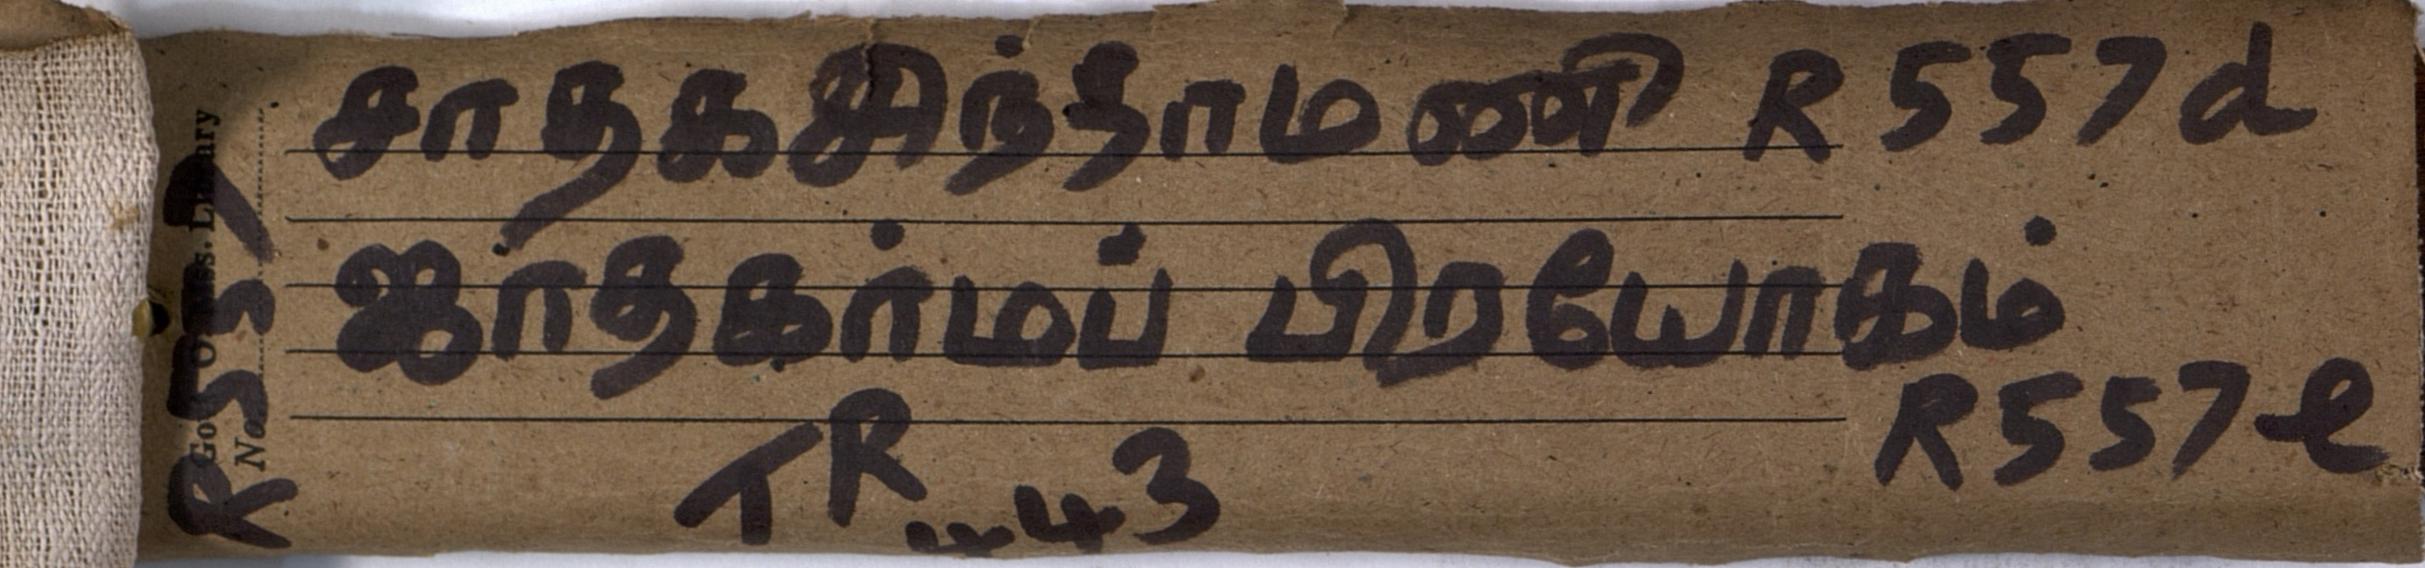 சாதகசிந்தாமணி R 557 d
ஜாதகர்மப் பிரயோகம்
R 557 e
TR 443
R 557
Govt. O. Mss. Library
No.